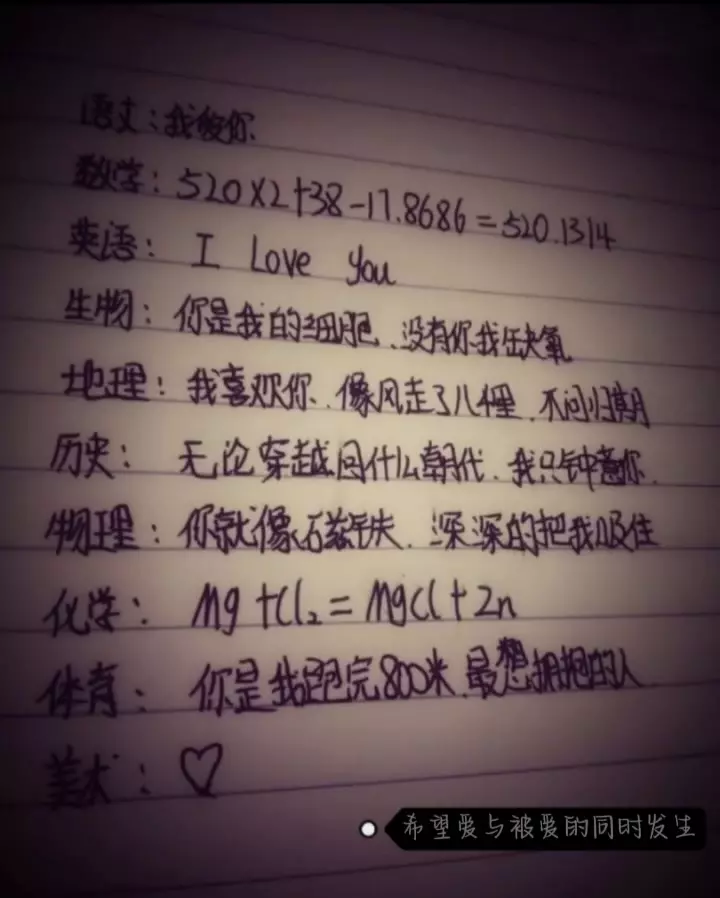 语文：我爱你
数学：520×2+38-17.8686=520.1314
英语：I Love you
生物：你是我的细胞、没有你我缺氧
地理：我喜欢你、像风走了八千里、不问归期
历史：无论穿越回什么朝代、我只钟意你.
物理：你就像磁铁、深深的把我吸住
化学：Mg+Cl₂=MgCl+Zn
体育：你是我跑完800米、最想拥抱的人
美术：♡
希望爱与被爱的同时发生